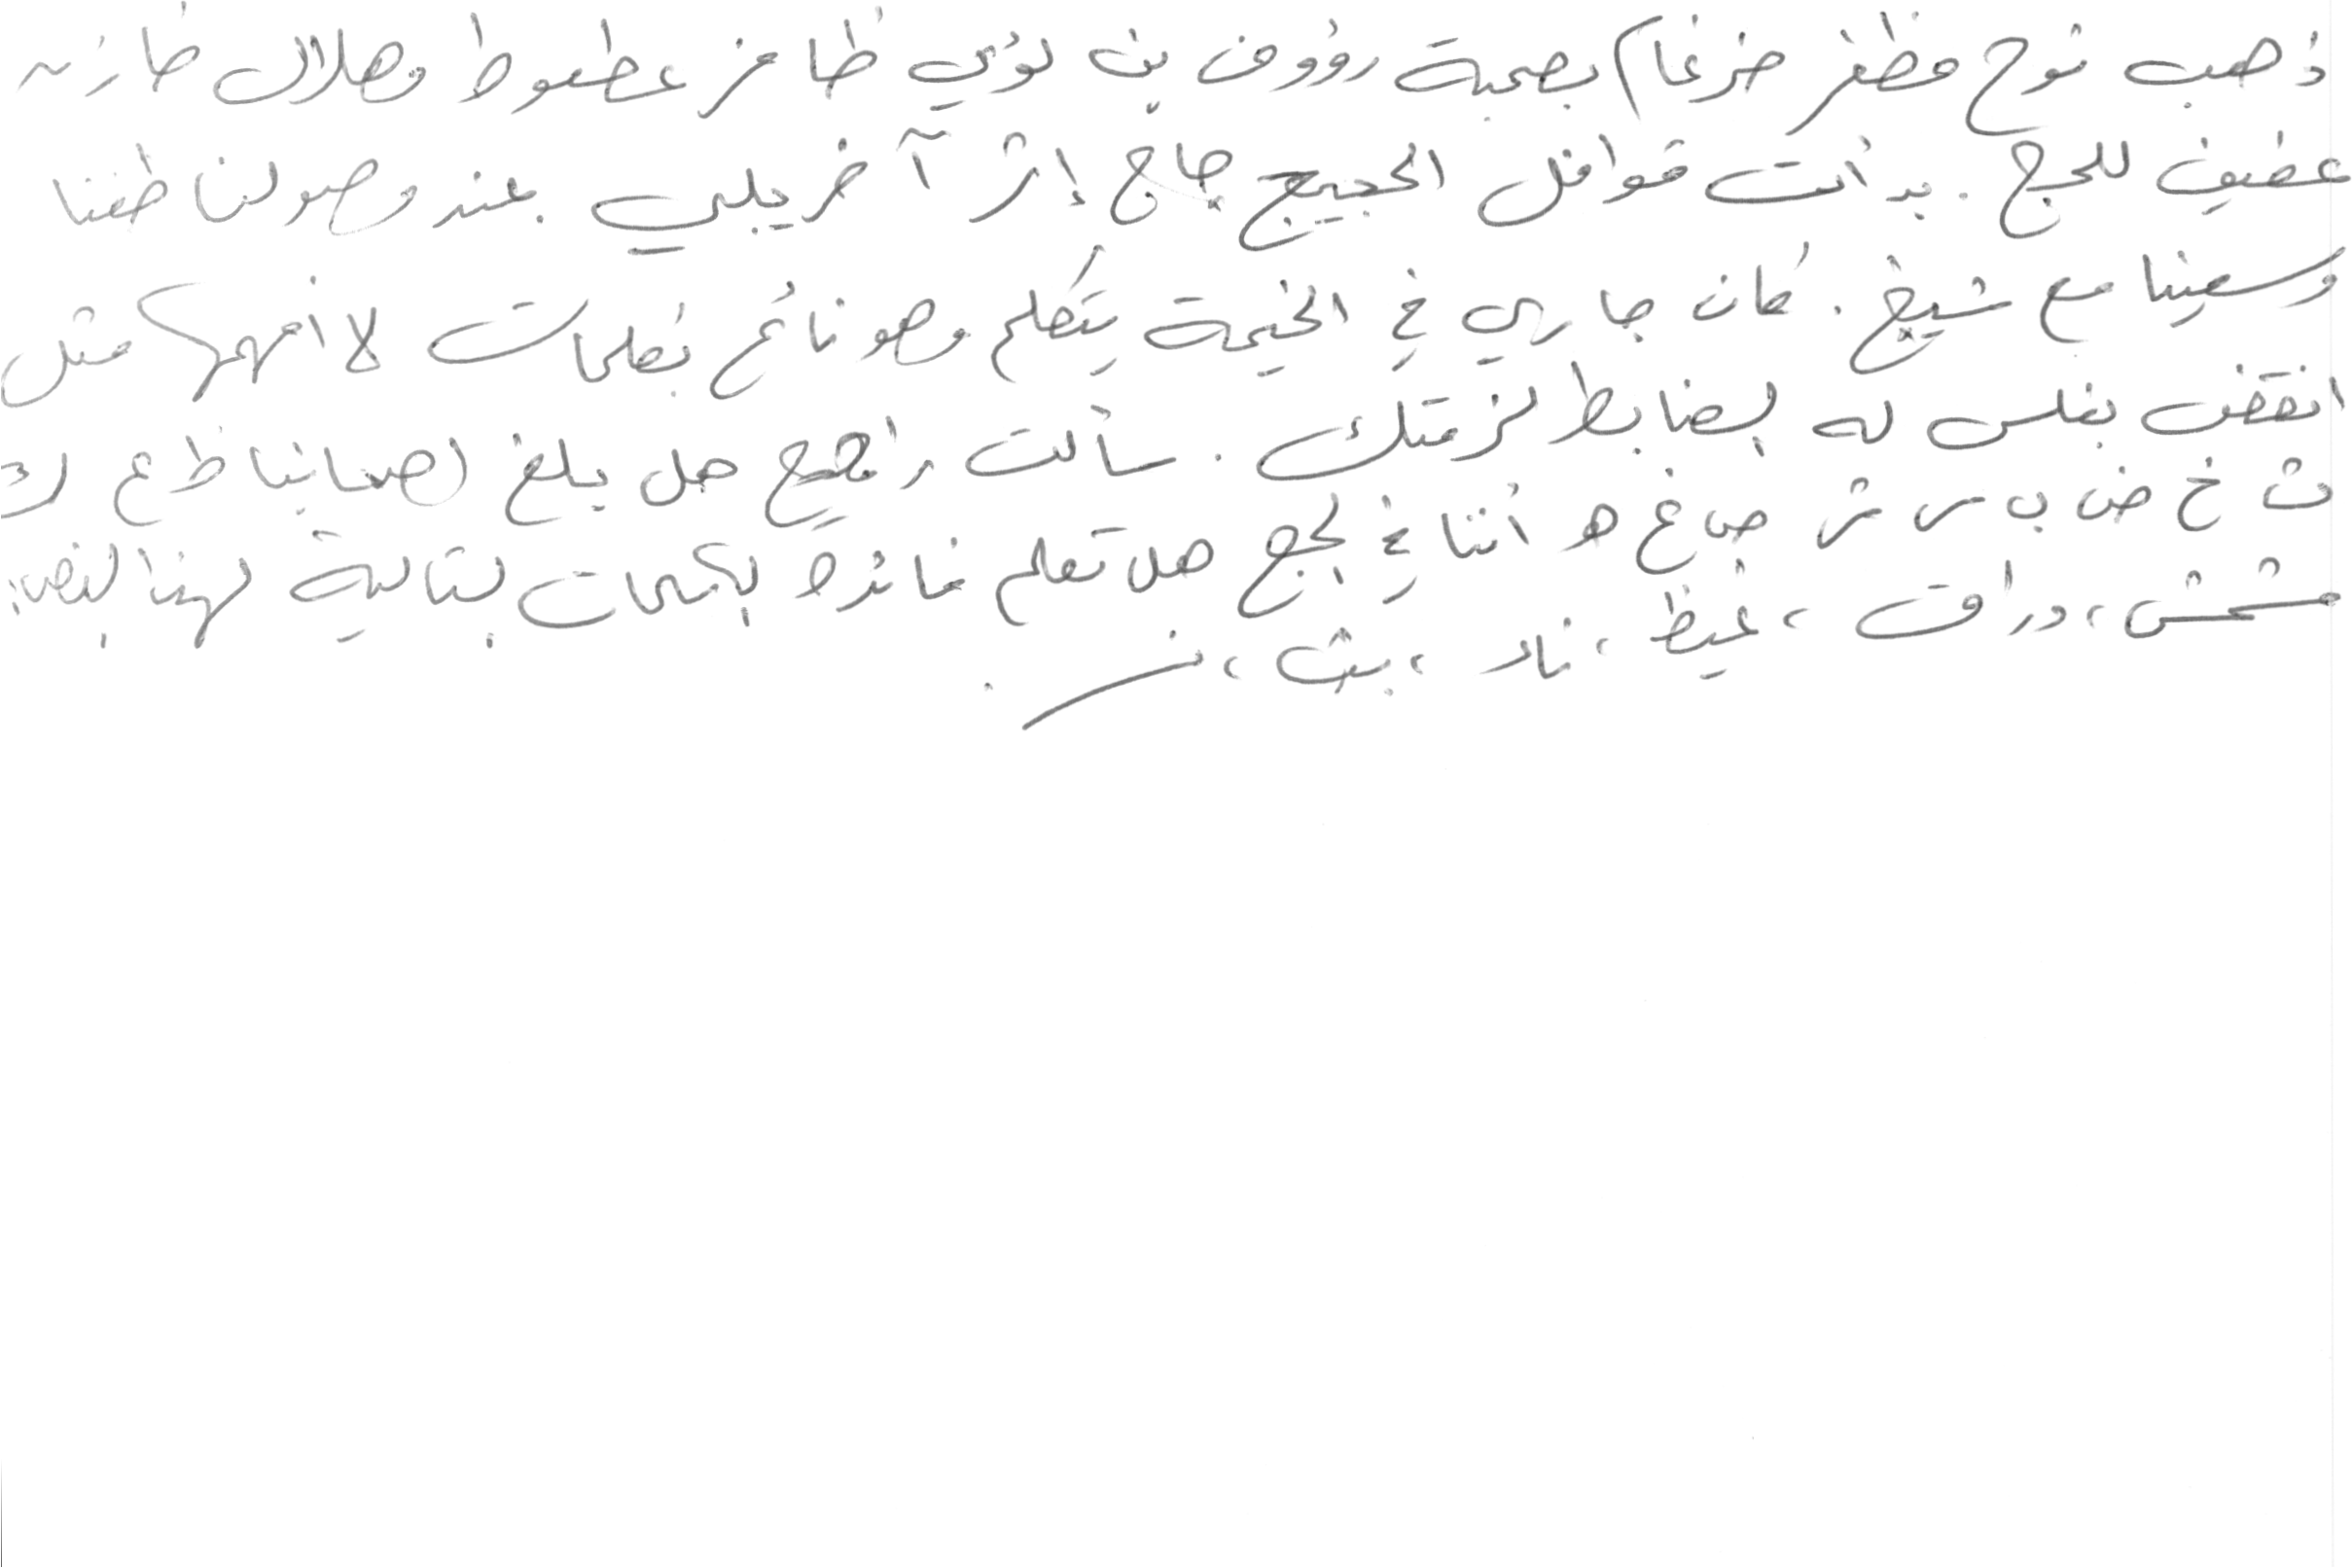 ذهب نوح مظفر ضرغام بصحبة رؤوف بن لؤي ظافر عطعوط وهلال طازه
عفيف للحج . بدأت قوافل الحجيج حاج إثر آخر يلبي . عند وصولنا طفنا
وسعينا مع شيخ . كان جاري في الخيمة يتكلم وهو نائم بكلمات لا أفهمها مثل
انفقت بغلس له الضابط لزمتك . سألت رافع هل يبلغ
ث خ ض ب س ش ص غ هـ اننا في الحج هل تعلم فائدة الكلمات التالية لهذا النص:
مشمش ، دراق ، غيظ ، ناد ، بث ،